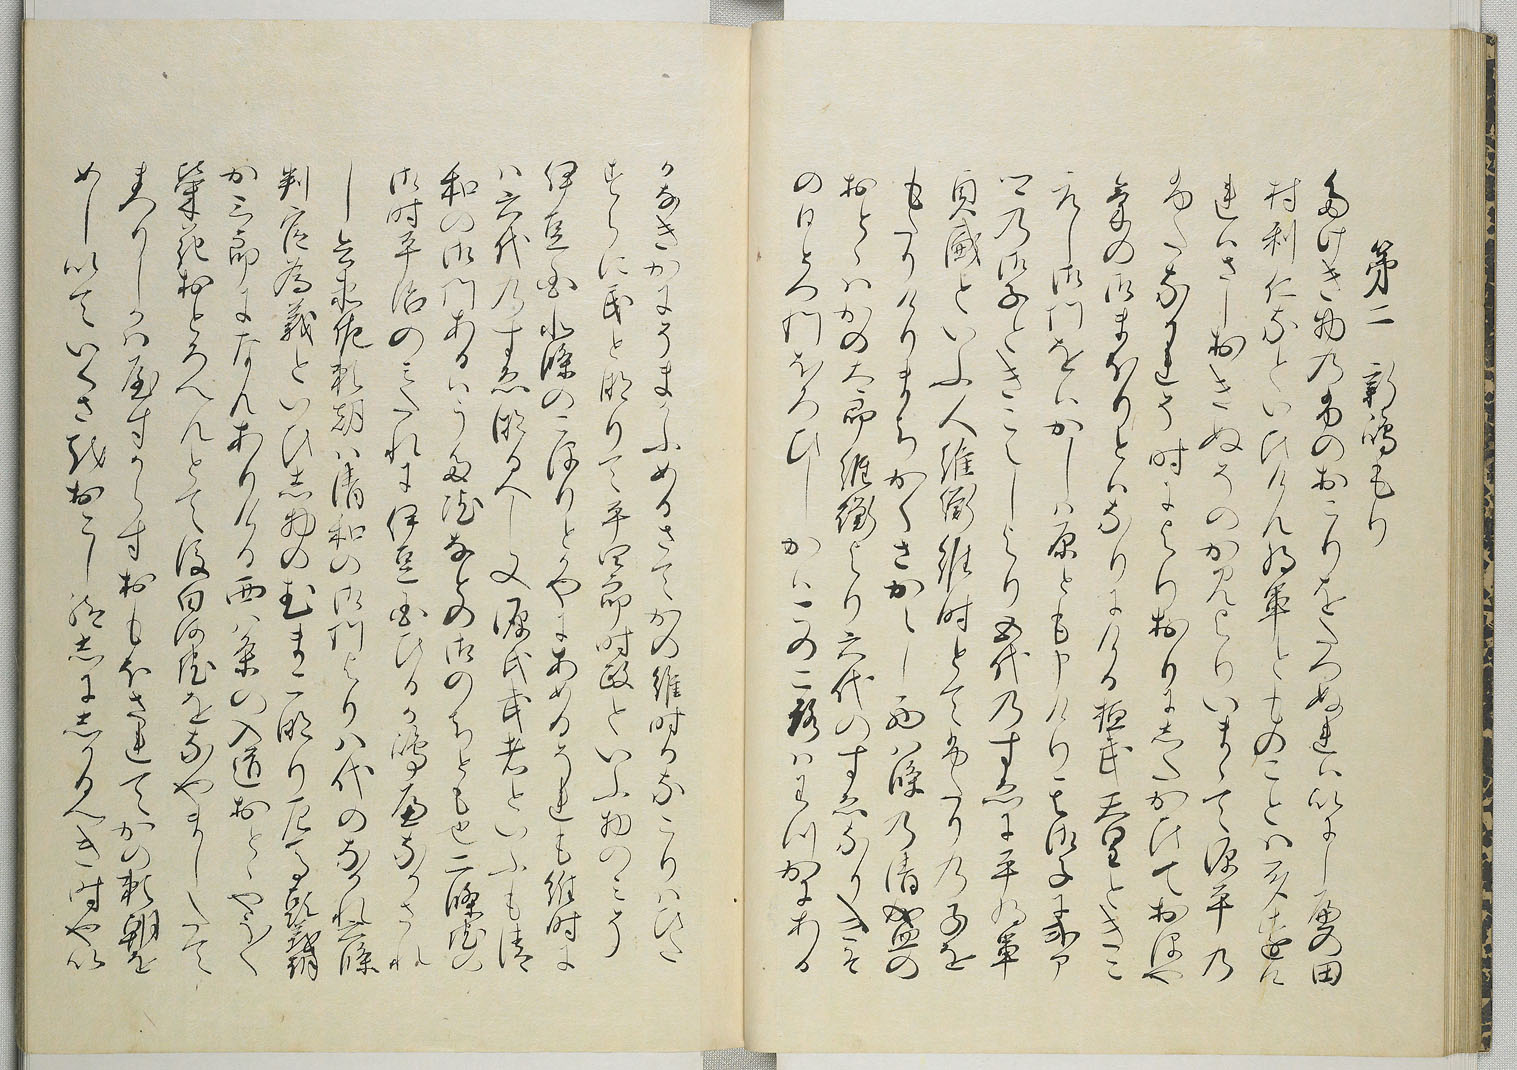 第二　新嶋もり
たけき物のふのおこりをたつぬれはいにしへの田
村利仁なといひけん将軍とものことはみゝとをけ
れはさしおきぬそのかみよりいまゝて源平の
ふたなかれそ時によりおりにしたかひておほや
けの御まほりとはなりにける桓武天皇ときこ
えし御門をはかしは原とも申けり其御子に式ア
卿の御子ときこえしより五代のすゑに平将軍
貞盛といふ人維衡維時とてふたりの子を
もたりけりまちかくさかへし西八條の清盛の
おとゝはかの太郎維衡より六代のすゑなりきそ
のひとつ門ほろひしかはこの二 はわつかにある
かなきかにそまよふめるさてかの維時かなこりはひた
すらに民となりて平四郎時政といふ物のみそ
伊豆国北條のこほりとかやにあめるそれも維時に
は六代のすゑなるへし又源氏武者といふも清
和の御門あるいはうた院なとの御のちとも也二條院の
御時平治のみたれに伊豆国ひるか嶋へなかされ
し兵衛佐頼朝は清和の御門より八代のなかれに六條
判官為義といひし物のむまこ也左馬頭義朝
か三郎になんありける西八条の入道おとゝやう〱
栄花おとろへんとて後白河院をなやましたて
まつりしかはやすからすおもほされてかの頼朝を
めしいてゝいくさをおこし給しにしかるへき時やい